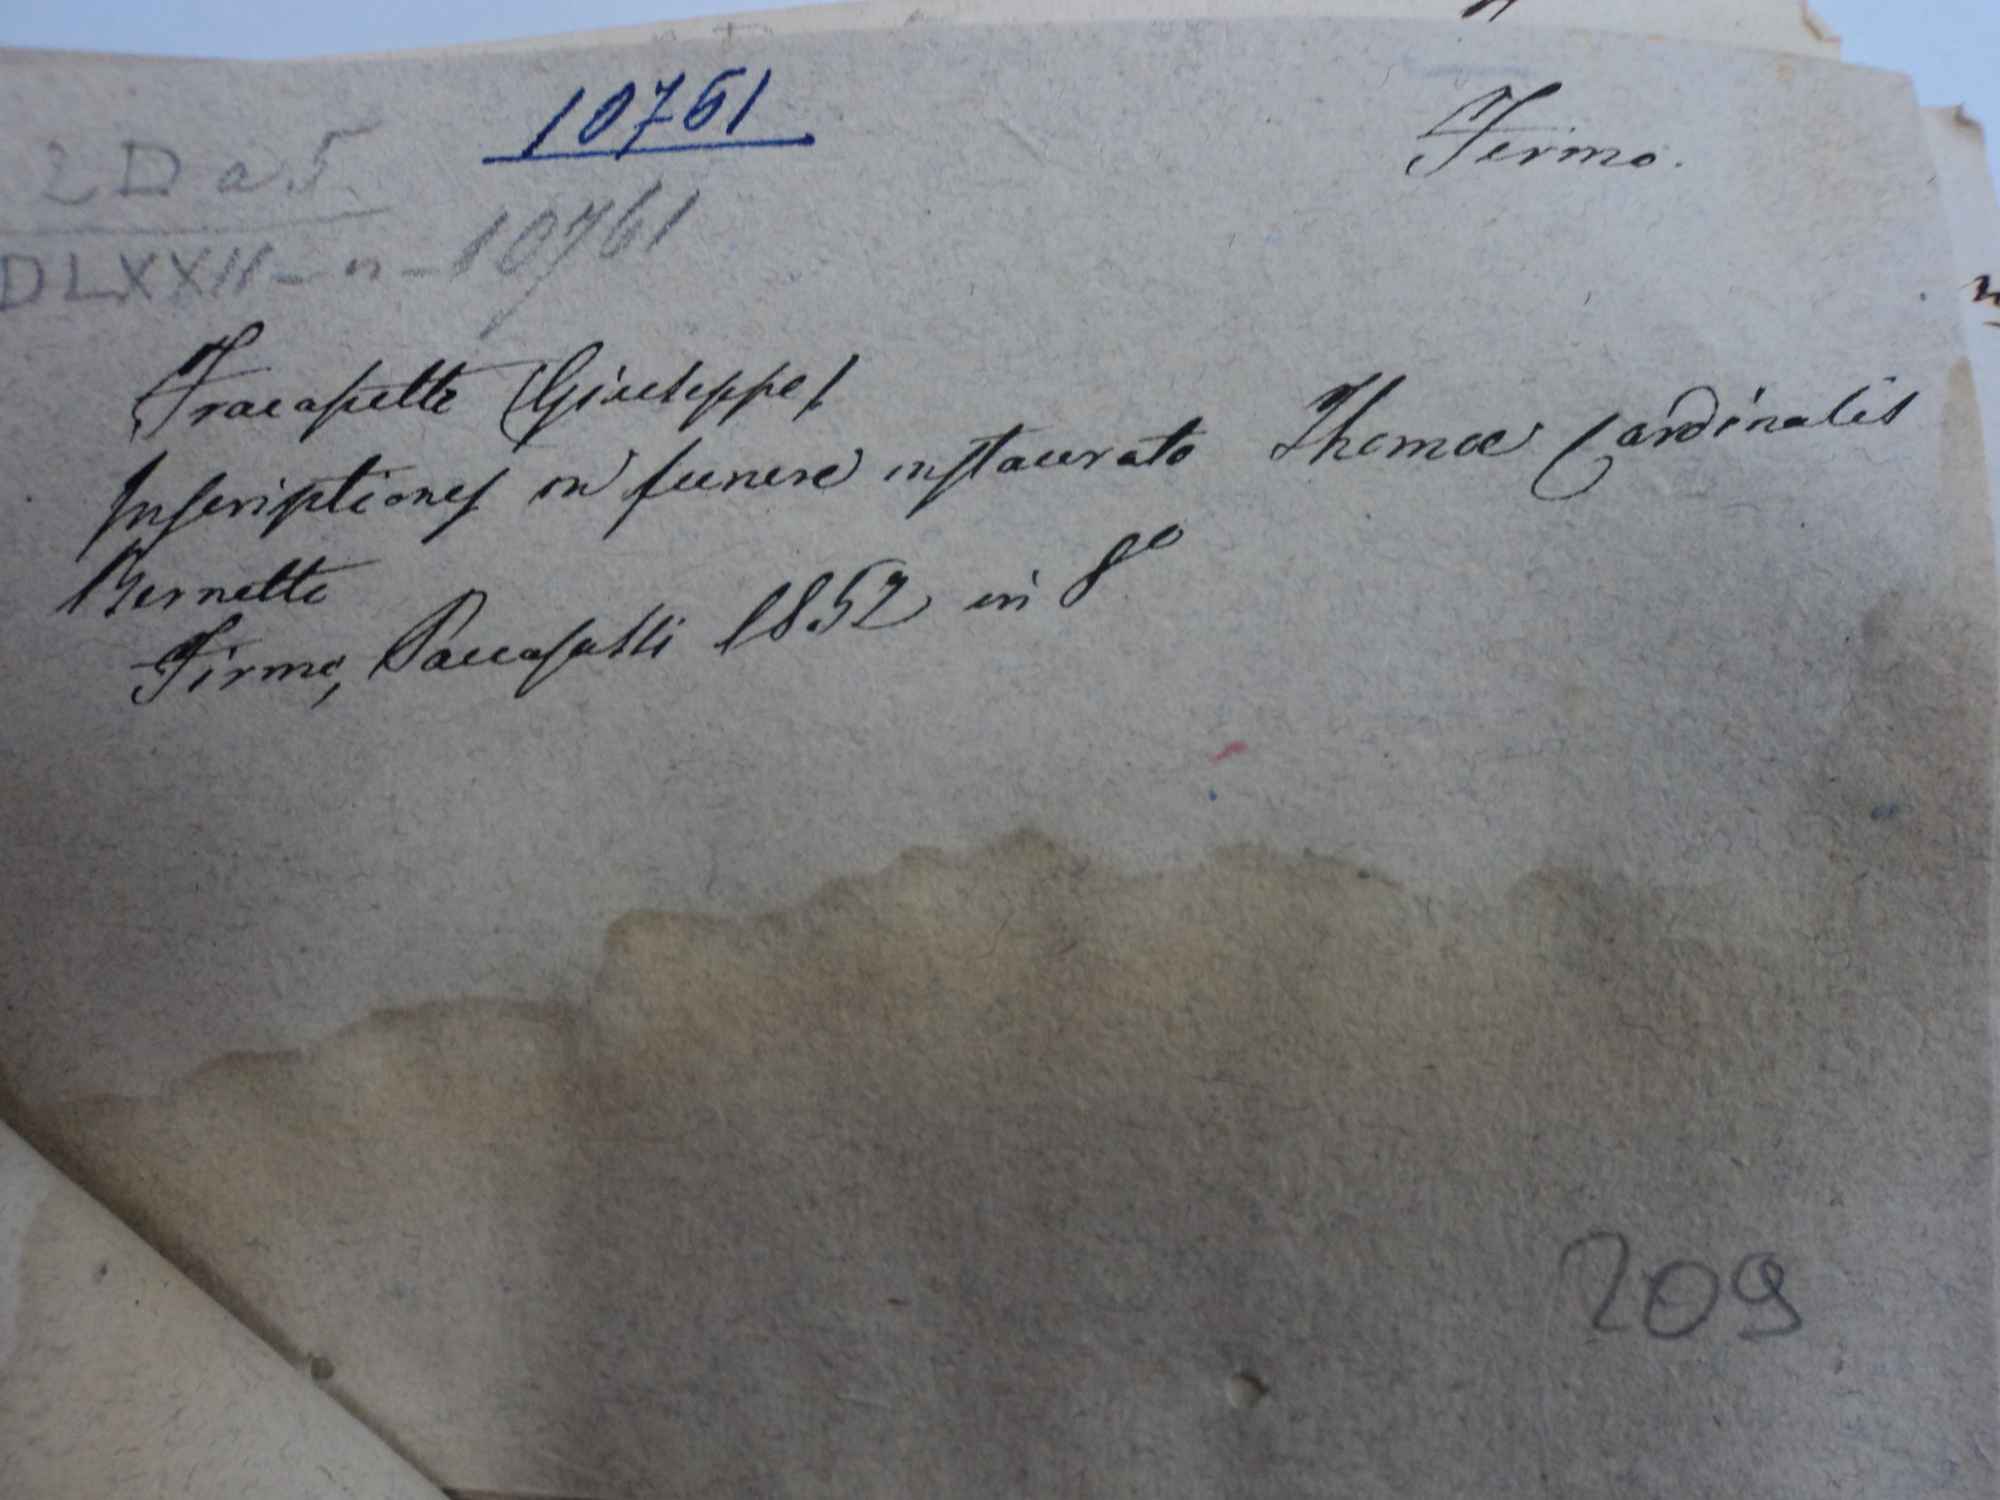 10761
Fermo.
2 D a 5
DLXXII - n - 10761
Fracassetti (Giuseppe)
Inscriptiones in funere instaurato Thomae Cardinalis
Bernetti
Firmo, Paccasassi 1852 in 8º
209